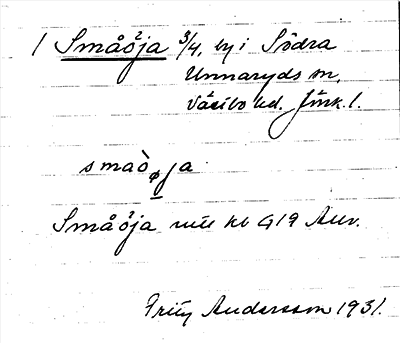 1 Småöja 3/4, by i Södra
Unnaryds sn,
Västbo hd. Jönk. l.
småò øja
Småöja kb A19 Auv.
Fritz Andersson 1931.